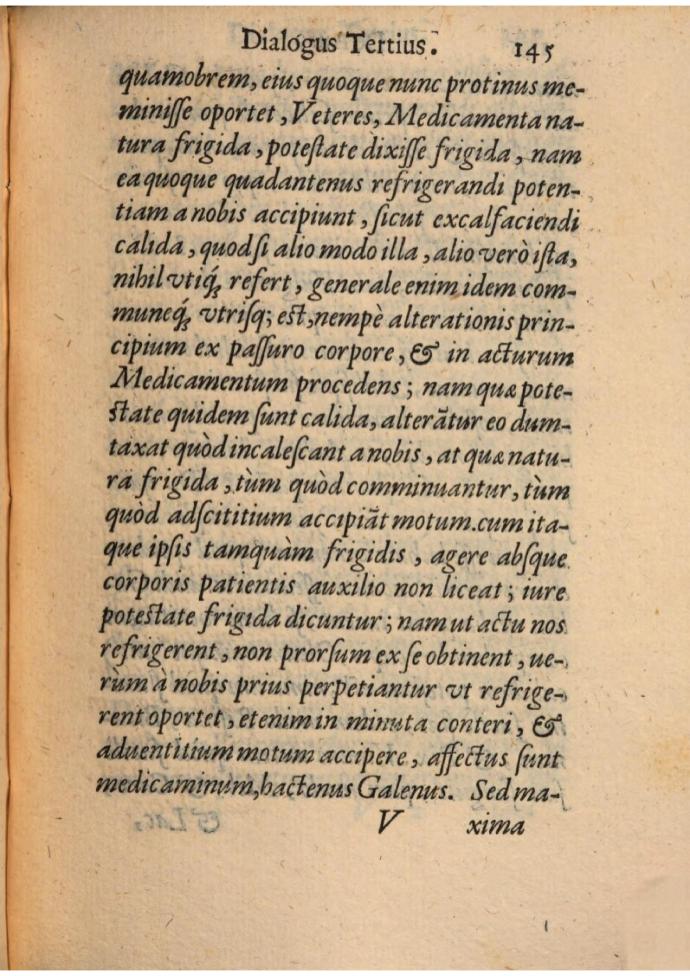 Dialogus Tertius. 145
quamobrem, eius quoque nunc protinus me-
miniſſe oportet, Veteres, Medicamenta na-
tura frigida, poteſtate dixiſſe frigida, nam
ea quoque quadantenus refrigerandi poten-
tiam a nobis accipiunt, ſicut excalfaciendi
calida, quodſi alio modo illa, alio verò iſta,
nihil vtiq́ꝫ refert, generale enim idem com-
muneq́ꝫ vtriſq; eſt, nempè alterationis prin-
cipium ex paſſuro corpore, & in acturum
Medicamentum procedens; nam quæ pote-
ſtate quidem ſunt calida, alterãtur eo dum-
taxat quòd incaleſcant a nobis, at quæ natu-
ra frigida, tùm quòd comminuantur, tùm
quòd adſcititium accipiãt motum. cum ita-
que ipſis tamquàm frigidis, agere abſque
corporis patientis auxilio non liceat; iure
poteſtate frigida dicuntur; nam ut actu nos
refrigerent, non prorſum ex ſe obtinent, ue-
rùm à nobis prius perpetiantur vt refrige-
rent oportet, etenim in minuta conteri, &
aduentitium motum accipere, affectus ſunt
medicaminum, hactenus Galenus. Sed ma-
V xima